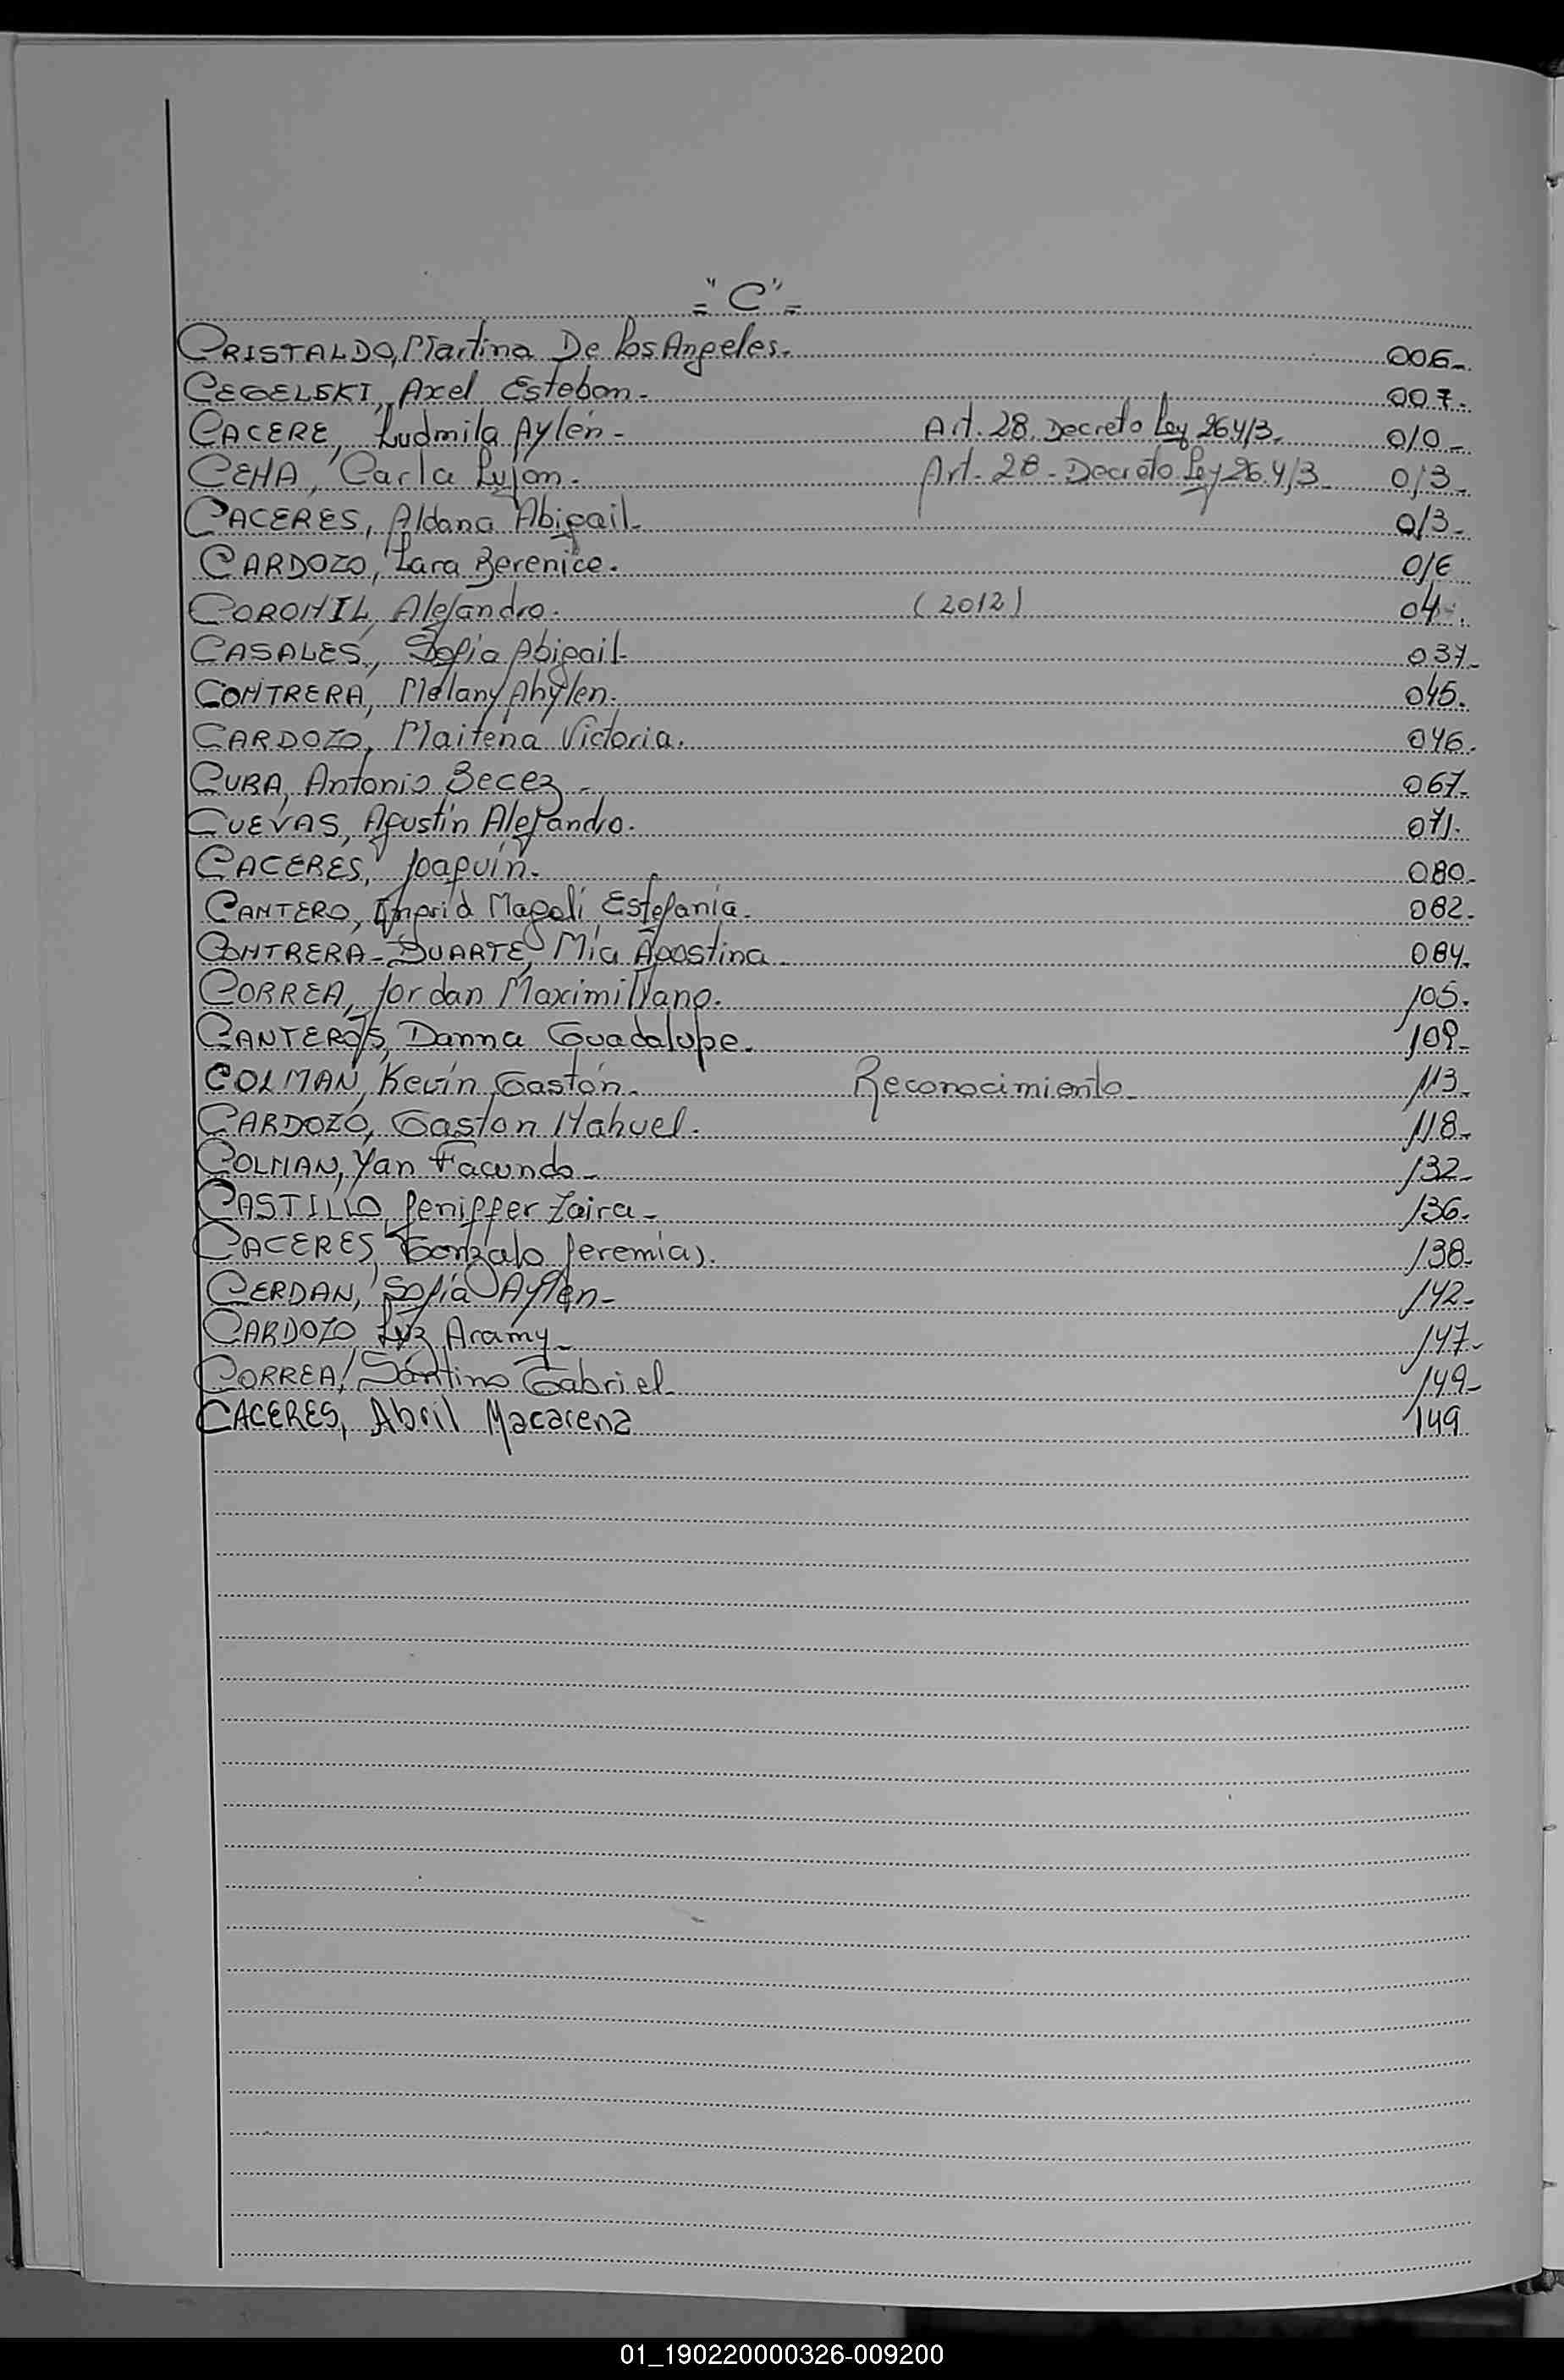 ="C"=
CRISTALDO, Martina De los Angeles. 006-
CEGELSKI, Axel Esteban- 007-
CACERE, Ludmila Aylén- Art. 28. Decreto Ley 26413. 010-
CEHA, Carla Lujan. Art-28-Decreto Ley 26.413- 013-
CACERES, Aldana Abigail- 013-
CARDOZO, Lara Berenice. 016
CORONIL, Alejandro. (2012)
CASALES, Sofia Abigail- 037-
CONTRERA, Melany Ahylen. 045.
CARDOZO, Maitena Victoria. 046.
CUBA, Antonio 067-
CUEVAS, Agustín Alejandro. 071.
CACERES, Joaquín. 080-
CANTERO, Ingrid Magalí Estefanía. 082-
CONTRERA-DUARTE, Mía Agostina- 084.
CORREA, Jordan Maximiliano. 105.
CANTEROS, Danna Guadalupe- 109-
COLMAN, Kevin Gastón- Reconocimiento- 113-
CARDOZO, Gaston Nahuel. 118-
COLMAN, Yan Facundo- 132-
CASTILLO, Jeniffer Zaira- 136.
CACERES, Gonzalo Jeremías. 138-
CERDAN, Sofía Aylen- 142-
CARDOZO Luz Aramy- 147-
CORREA, Santino Gabriel- 149-
CACERES, Abril Macarena 149
01_190220000326-009200